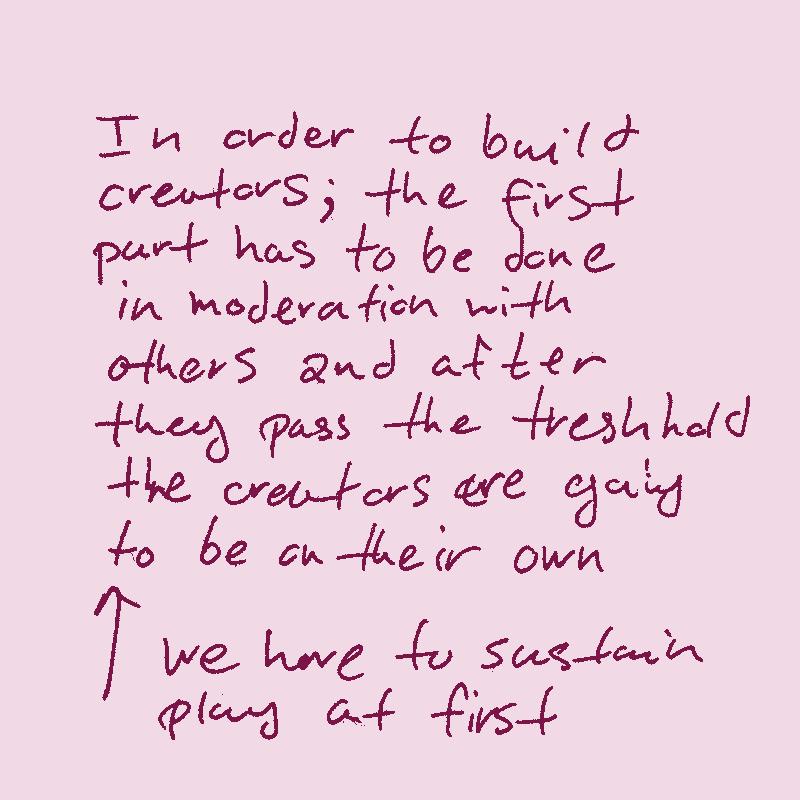 In order to build
creators; the first
part has to be done
in moderation with
others and after
they pass the treshhold
the creators are going
to be on their own
we have to sustain
play at first